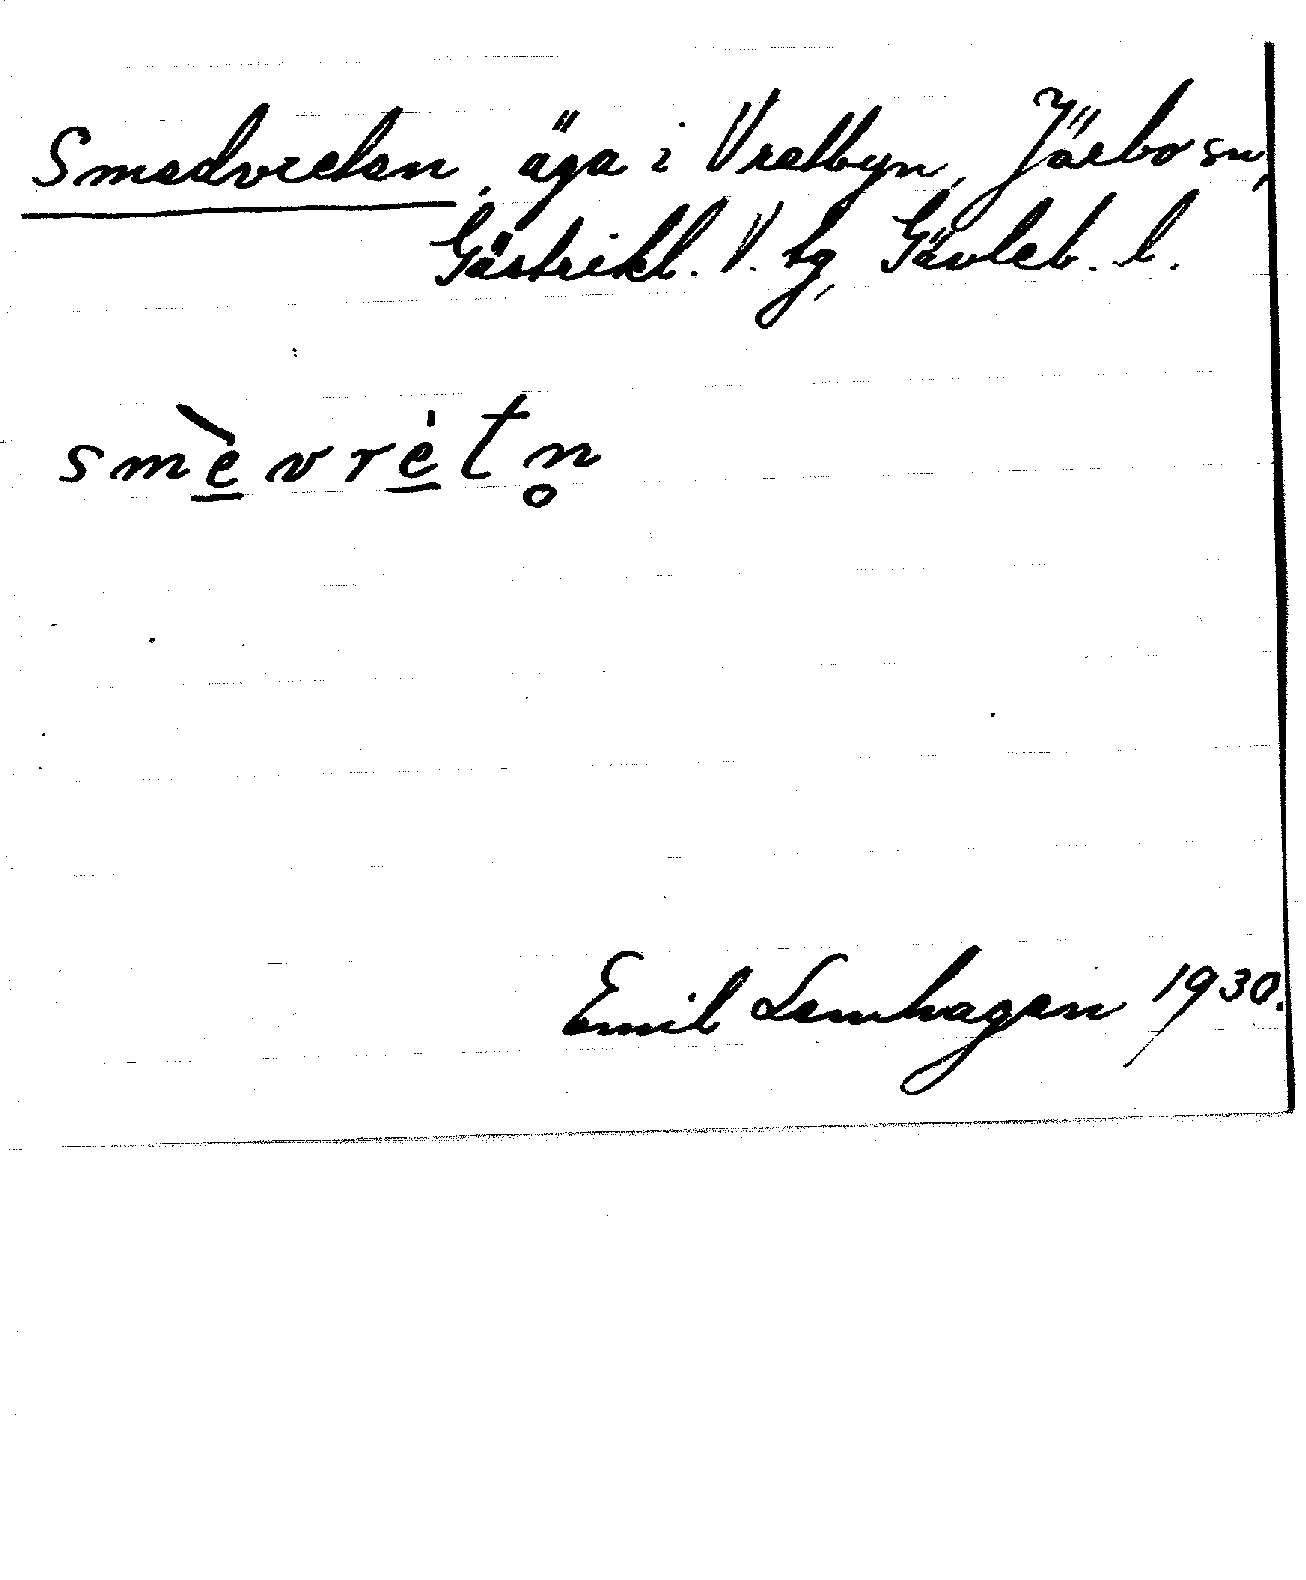 Smedvreten, äga i Vretbyn, Järbo sn,
Gästrikl. V. tg, Gävleb. l.
smèvrètn̥
Emil Lemhagen 1930.